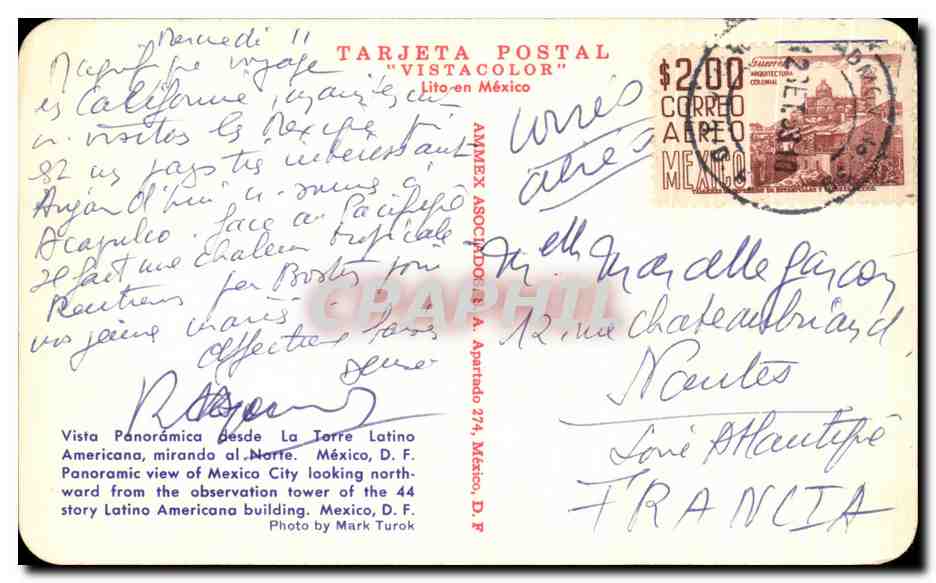 Mercredi 11
Magnifique voyage
en Californie,
visitons le Mexique qui
est un pays très intéressant
Aujourd'hui ns sommes à
Acapulco. face au Pacifique
Il fait une chaleur tropicale
Rentrons par Boston
nos jeunes mariés
Affections
TARJETA POSTAL
"VISTACOLOR"
Lito en México
correo
aereo
Guerrero
ARQUITECTURA
COLONIAL
$2.00
CORREO
AEREO
MEXICO
AMMEX ASOCIADOS, S. A. Apartado 274, México, D. F
Melle Marcelle Garçon
12 rue Chateaubriand
Nantes
Loire Atlantique
FRANCIA
Vista Panorámica desde La Torre Latino
Americana, mirando al Norte. México, D. F.
Panoramic view of Mexico City looking north-
ward from the observation tower of the 44
story Latino Americana building. Mexico, D. F.
Photo by Mark Turok
CPAPHIL